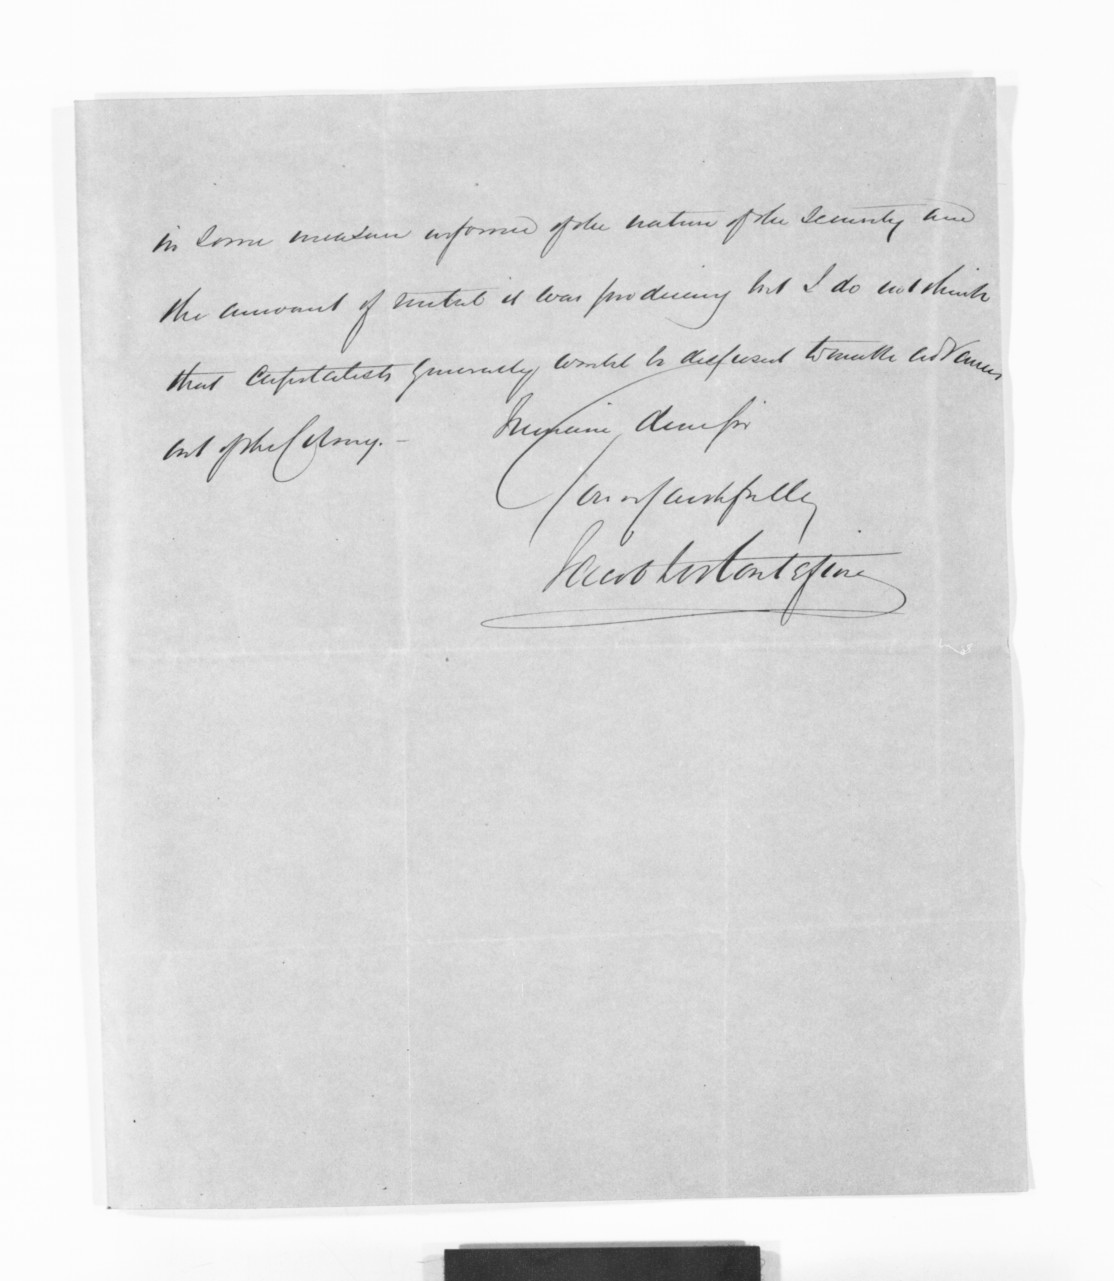 in some measure informed of the nature of the security and
the amount of metal it was producing but I do not think
that capitalists generally would be disposed to make advances
out of the Colony. –
I remain Dear Sir
Yours faithfully
Jacob Montefiore